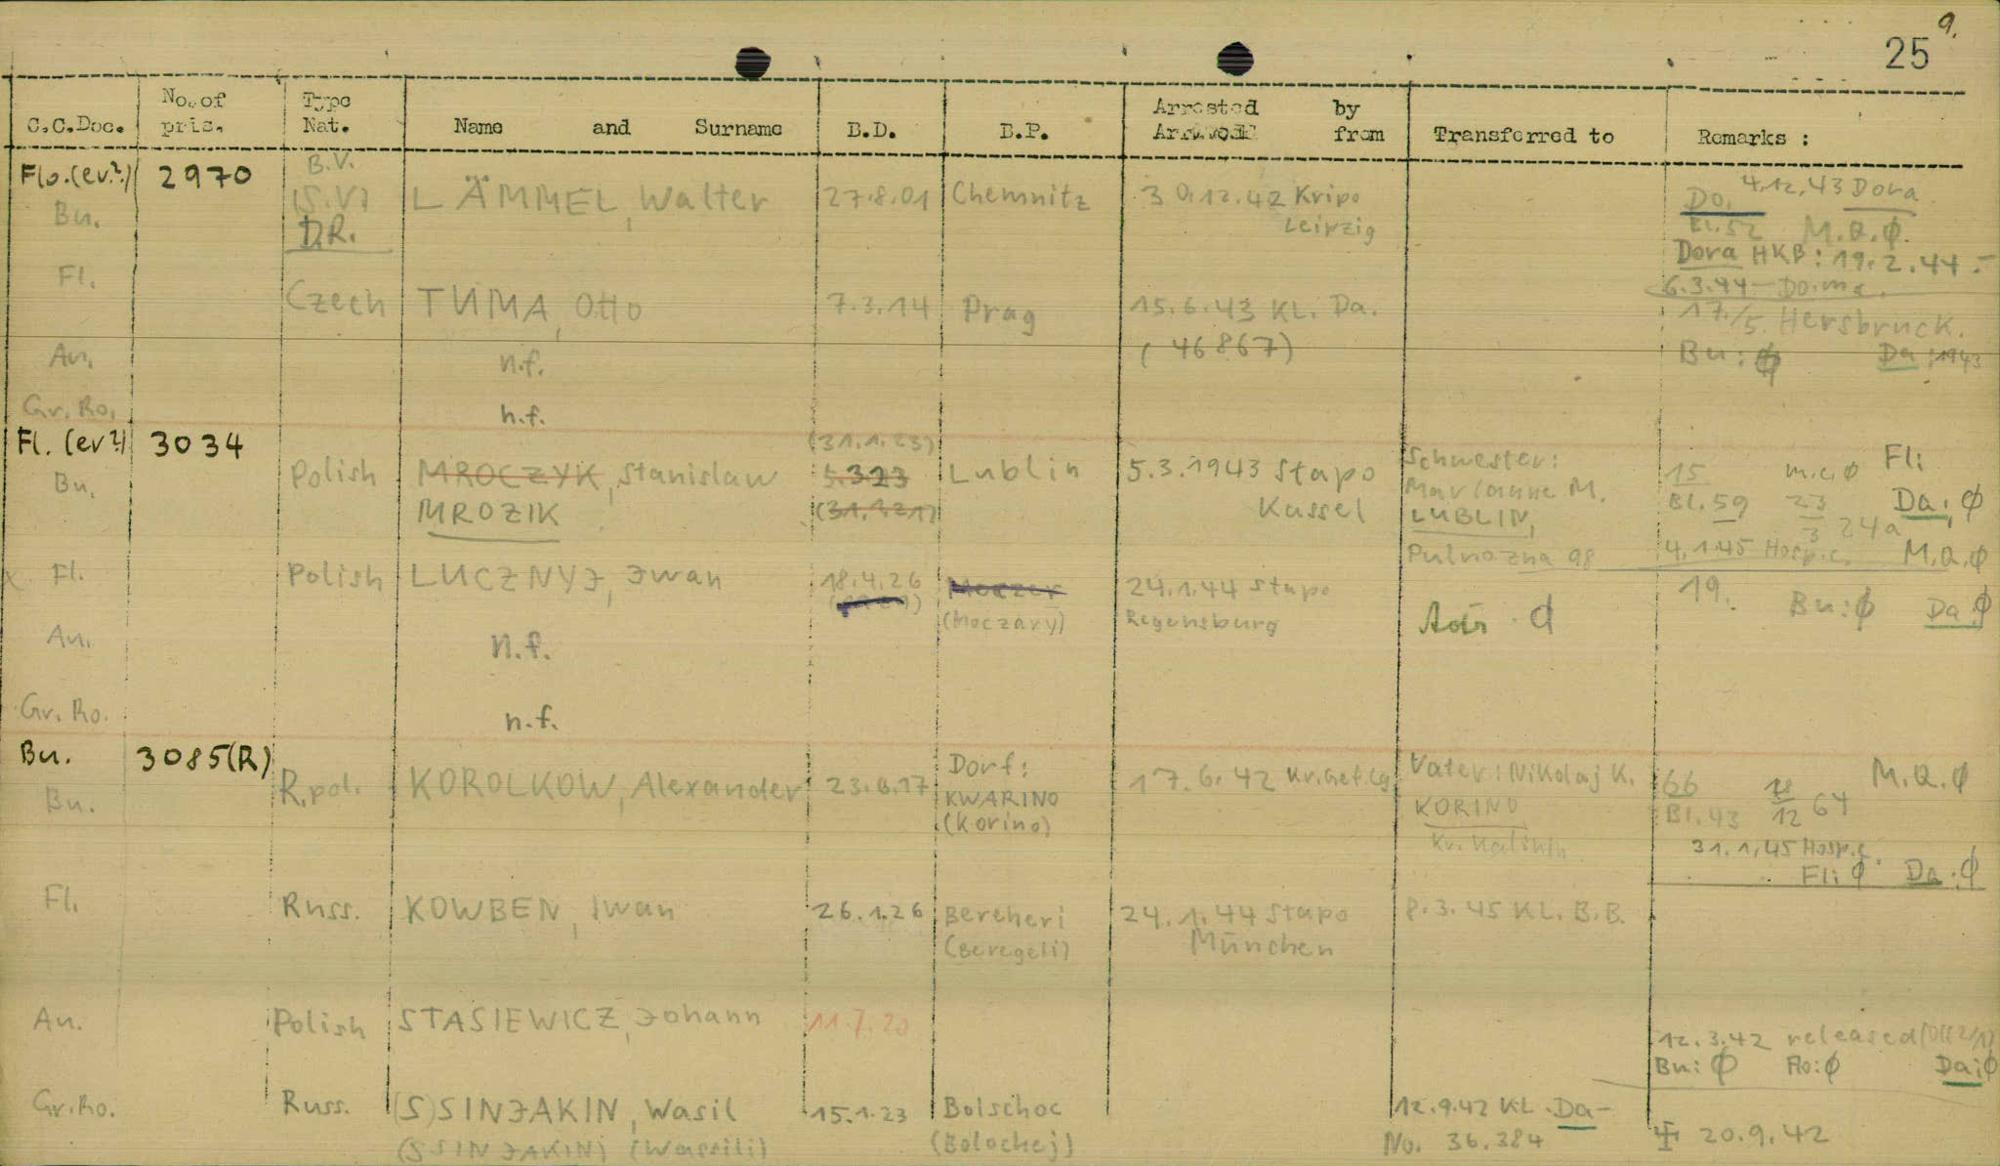 9.
25
C.C.Doc. No. of pris. Type Nat. Name and Surname B.D. B.P. Arrested by from Transferred to Remarks :
Flo.(ev.?) 2970 B.V.
Bu. (S.V) LÄMMEL, Walter 27.8.01 Chemnitz 30.12.42 Kripo Do. 4.12.43 Dora
D.R. Leipzig Bl.52 M.Q.Ø.
Dora HKB: 19.2.44.-
Fl. 6.3.44-
Czech TUMA, Otto 7.3.14 Prag 15.6.43 KL. Da. 17./5. Hersbruck.
An. n.f. (46867) Bu: Ø Da :1943
Gr. Ro. n.f.
Fl. (ev?) 3034 (31.1.23) Schwester: Fl:
Bu. Polish MROCZYK, Stanislaw 5.323 Lublin 5.3.1943 Stapo M. 15 m.c.Ø
MROZIK (31.1.21) Kassel LUBLIN, Bl.59 23/3 24a Da: Ø
98 4.1.45 Hosp.c. M.Q.Ø
x Fl. Polish LUCZNYJ, Jwan 18.4.26 24.1.44 Stapo 19. Bu:Ø Da Ø
(Moczary) Regensburg
An. n.f.
Gr. Ro. n.f.
Bu. 3085(R) Dorf: Vater: Nikolaj K. M.Q.Ø
Bu. R.pol. KOROLKOW, Alexander KWARINO 17.6.42 KORINO 66 64
(Korino) Kr. Kalinin Bl.43 12
31.1.45 Hosp.c.
Fl: Ø Da: Ø
Fl. Russ. KOWBEN, Iwan 26.1.26 Bereheri 24.1.44 Stapo 8.3.45 KL. B.B.
(Beregeli) München
An. Polish STASIEWICZ, Johann 11.7.20 12.3.42 released
Bu: Ø Flo: Ø Da: Ø
Gr.Ro. Russ. (S)SINJAKIN, Wasil 15.1.23 Bolschoc 12.9.42 KL. Da-
(SSINJAKIN) (Wassili) (Bolochej) No. 36.384 20.9.42